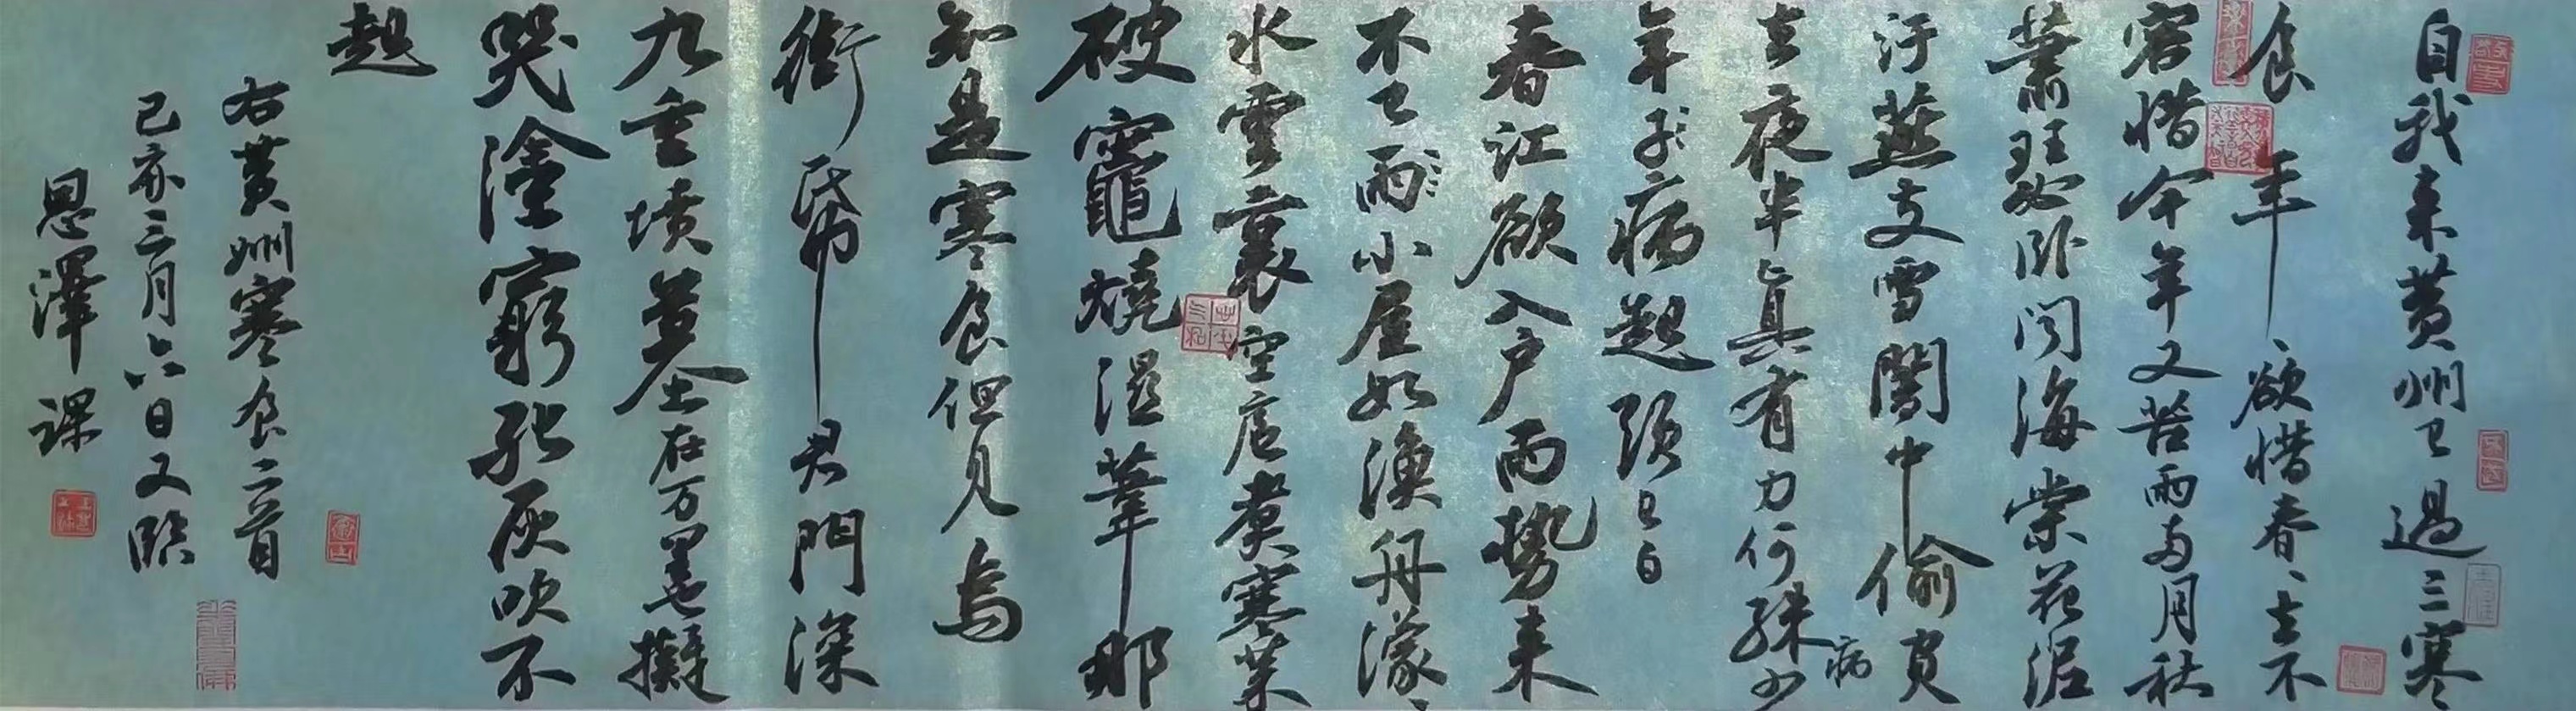 自我来黄州已過三寒
食年、欲惜春、去不
容惜今年又苦雨两月秋
蕭瑟卧聞海棠花泥
汙燕支雪闇中偷負
去夜半真有力何殊少
病
年子病起頭已白
春江欲入户雨勢来
不已雨小屋如漁舟濛、
水雲裏空庖煮寒菜
破竈燒濕葦那
知是寒食但見烏
銜帋君門深
九重墳墓在万里也擬
哭塗窮死灰吹不
起
右黄州寒食二首
己亥三月六日又臨
恩澤課